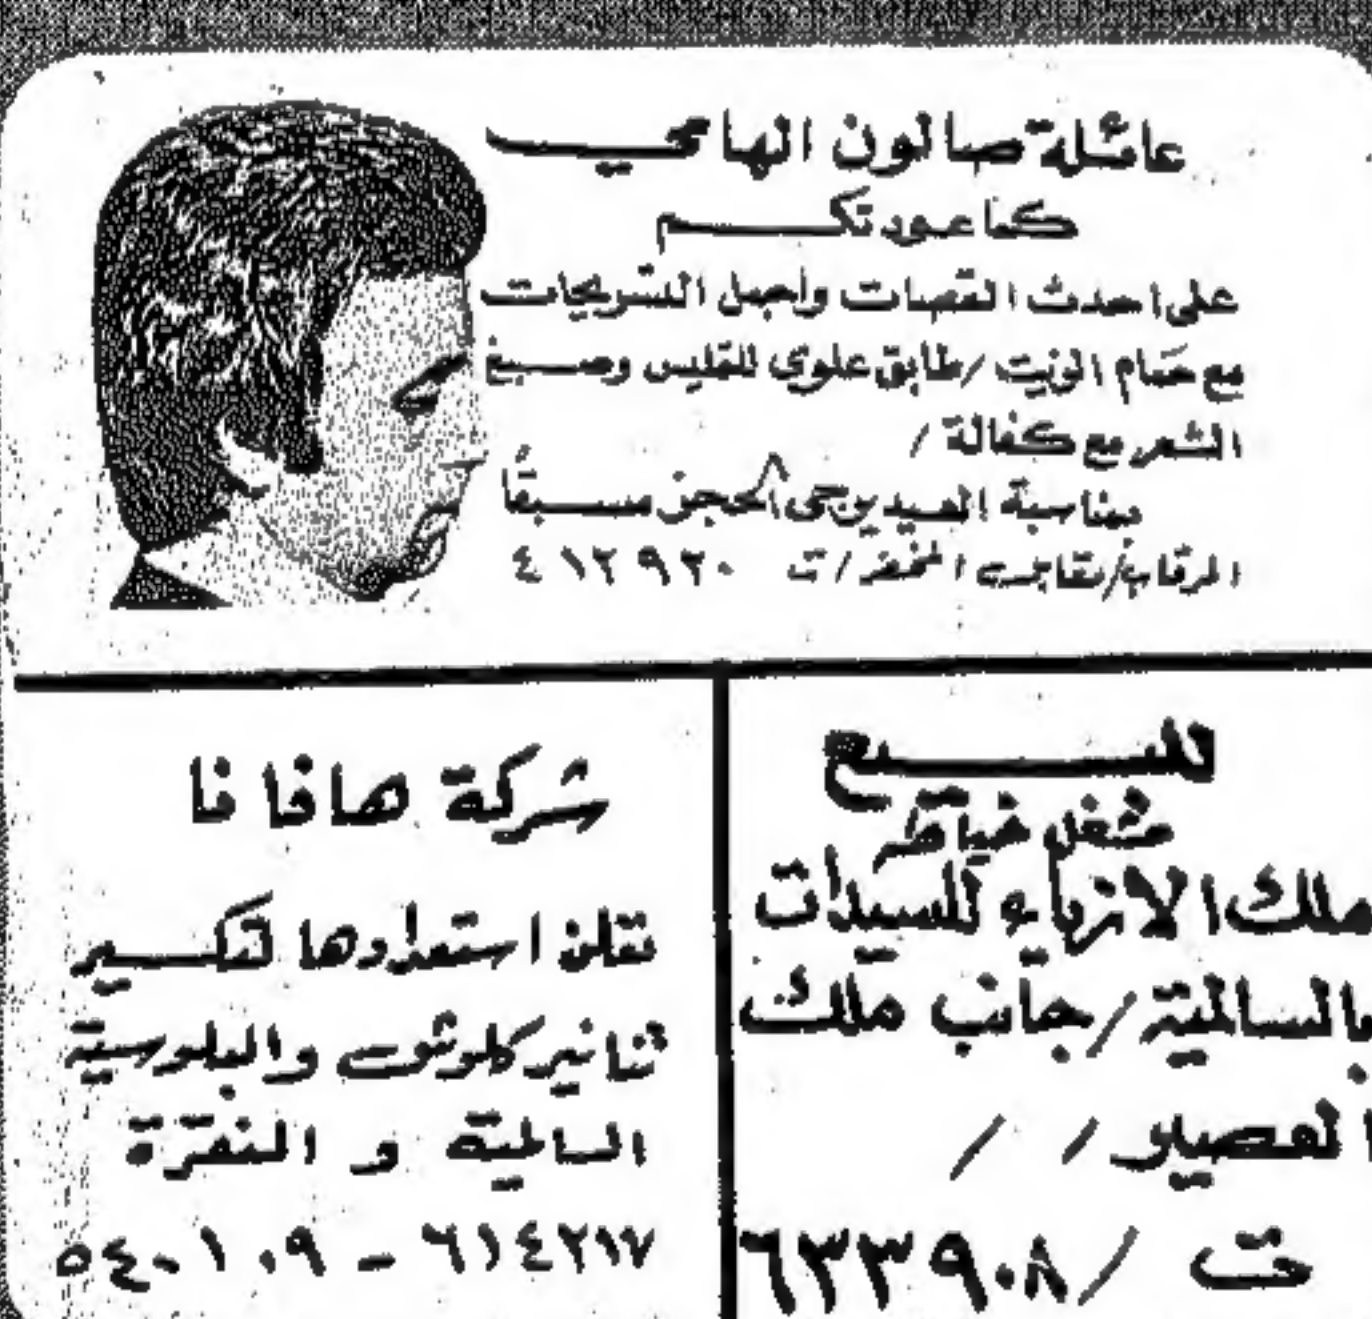 عائلة صالون الهامي
كما عودتكم
على احدث القصات واجمل التسريحات
مع حمام الزيت / طابق علوي للتمليس وصبغ
الشعر مع كفالة /
بمناسبة العيد يرجى الحجز مسبقاً
المرقاب / مقابل المخفر / ت ٤١٢٩٢٠
للبيع
مشغل خياطة
ملك الازياء للسيدات
بالسالمية / جانب ملك
العصير / /
ت / ٦٣٣٩٠٨
شركة هافانا
تعلن استعدادها لتكسير
تنانير كلوش والبلوسية
السالمية و النقرة
٦١٤٢١٧ - ٥٤٠١٠٩